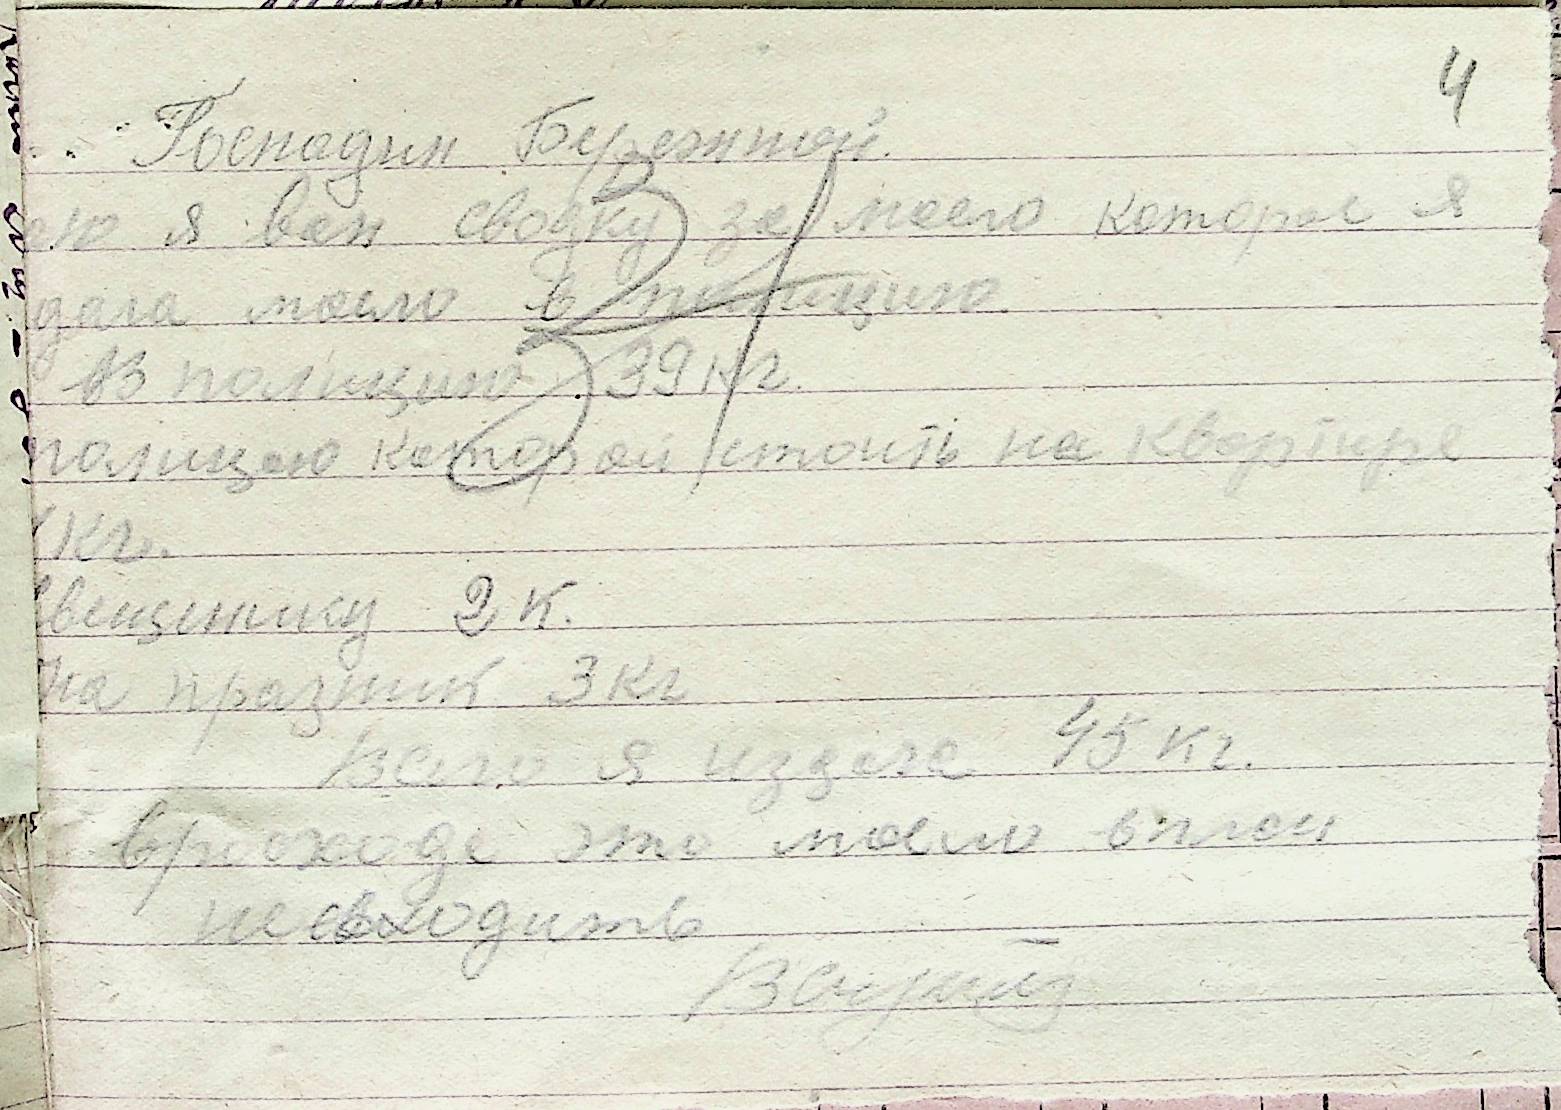 4
Господин Бережной.
ою я вам сводку за масло которое я
дала масло в полицию.
в полицию 39 кг.
полицаю которой стоить на квартире
1 кг.
свещенику 2 к.
на празник 3 кг
Всего я издала 45 кг.
врасходе это масло вплан
невходить